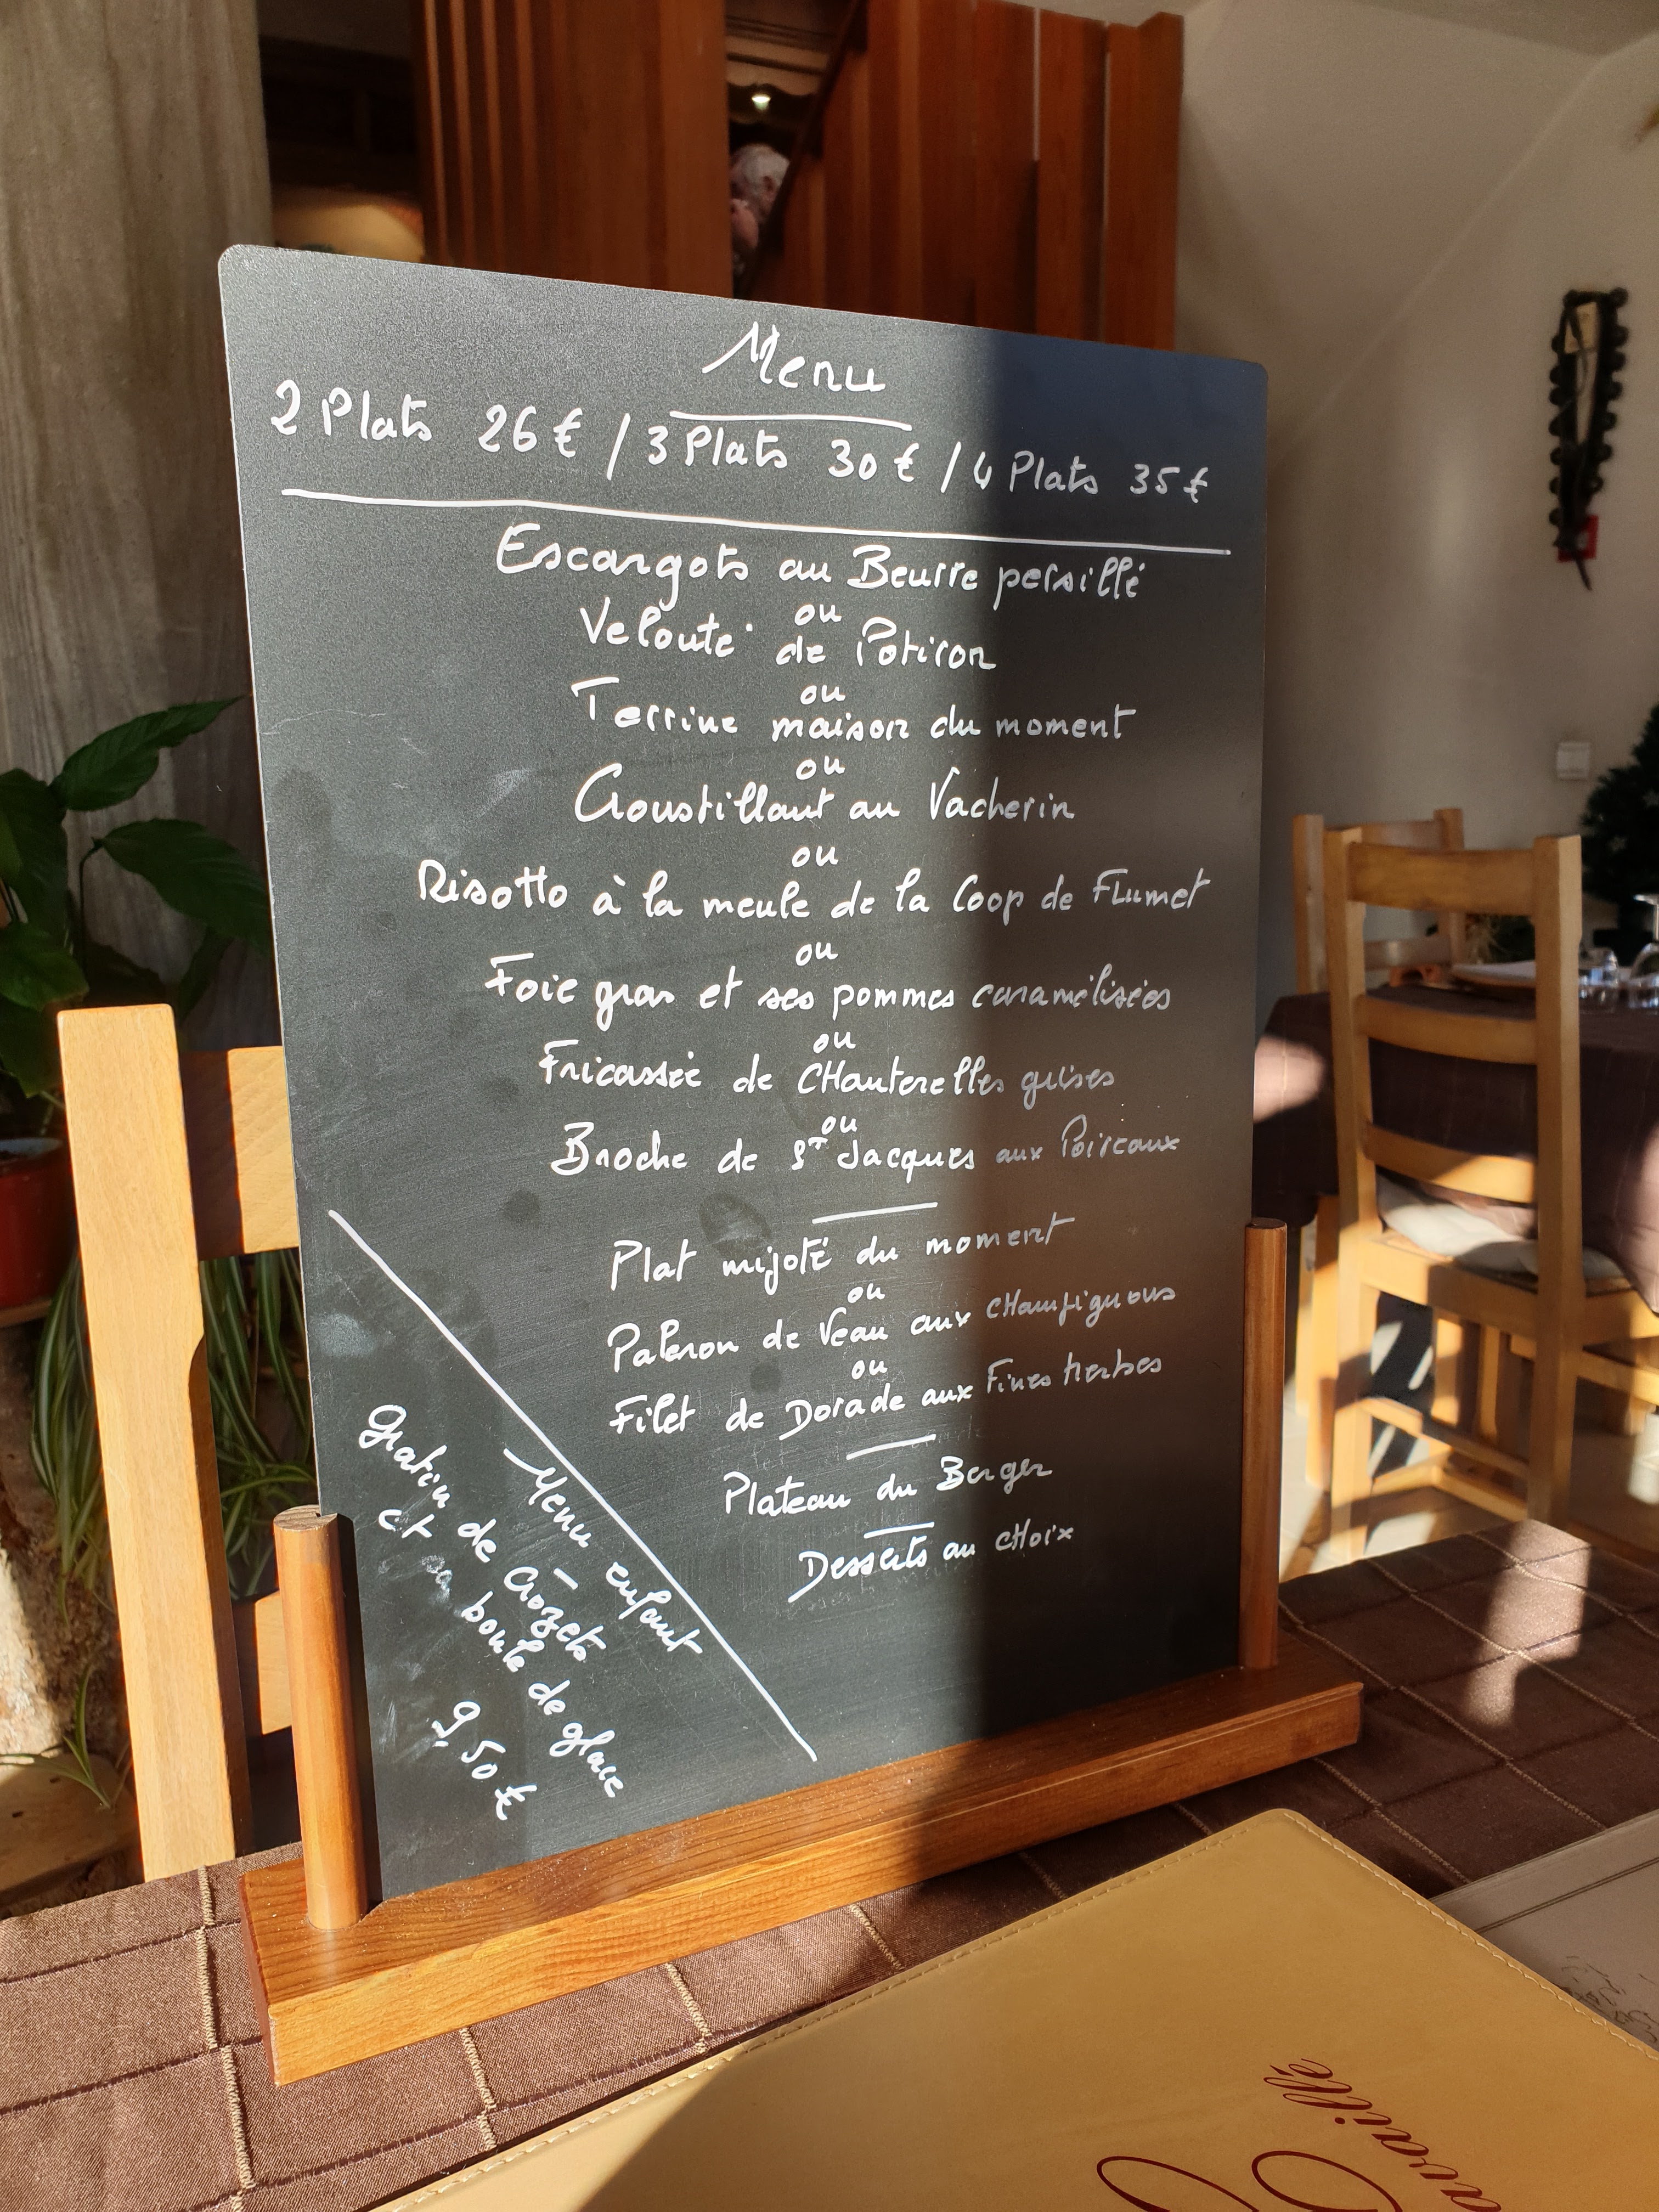 Menu
2 Plats 26€ / 3 Plats 30€ / 4 Plats 35€
Escargots au Beurre persillé
ou
Velouté de Potiron
ou
Terrine maison du moment
ou
Croustillant au Vacherin
ou
Risotto à la meule de la Coop de Flumet
ou
Foie gras et ses pommes caramélisées
ou
Fricassée de CHanterelles grises
ou
Broche de St Jacques aux Poireaux
Plat mijoté du moment
ou
Paleron de Veau aux CHampignons
ou
Filet de Dorade aux Fines Herbes
Plateau du Berger
Desserts au CHoix
Menu enfant
Gratin de Crozets
et sa boule de glace
9,50 €